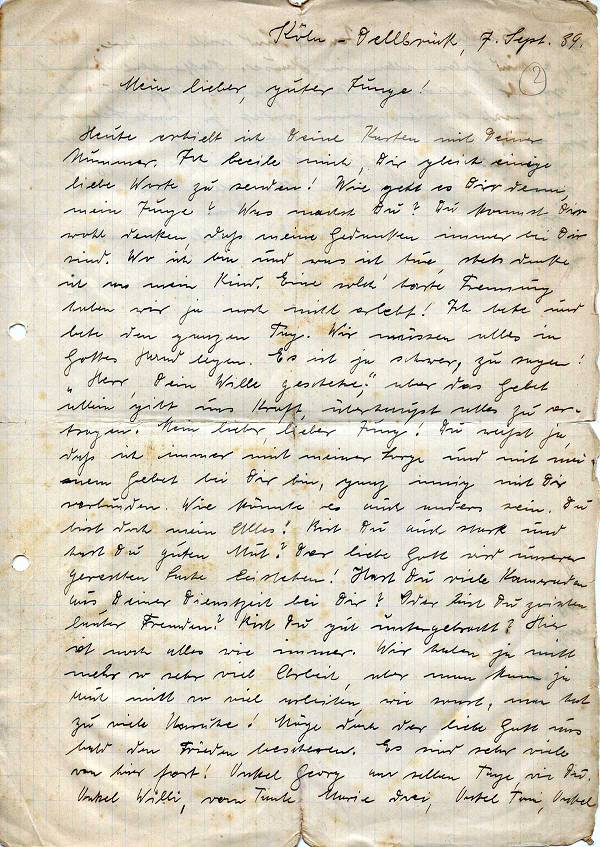 Köln - Dellbrück, 7. Sept. 39.
2
Mein lieber, guter Junge!
Heute erhielt ich Deine Karten mit Deiner
Nummer. Ich beeile mich, Dir gleich einige
liebe Worte zu senden! Wie geht es Dir denn,
mein Junge? Was machst Du? Du kannst Dir
wohl denken, daß meine Gedanken immer bei Dir
sind. Wo ich bin und was ich tue, stets denke
ich an mein Kind. Eine solch' harte Trennung
haben wir ja noch nicht erlebt! Ich bete und
bete den ganzen Tag. Wir müssen alles in
Gottes Hand legen. Es ist ja schwer, zu sagen!
"Herr, Dein Wille geschehe," aber das Gebet
allein gibt uns Kraft, überhaupt alles zu er-
tragen. Mein lieber, lieber Jung! Du weißt ja,
daß ich immer mit meiner Sorge und mit mei
nem Gebet bei Dir bin, ganz innig mit Dir
verbunden. Wie könnte es auch anders sein. Du
bist doch mein Alles! Bist Du auch stark und
hast Du guten Mut? Der liebe Gott wird unserer
gerechten Sache beistehen! Hast Du viele Kameraden
aus Deiner Dienstzeit bei Dir? Oder bist Du zwischen
lauter Fremden? Bist Du gut untergebracht? Hier
ist noch alles wie immer. Wir haben ja nicht
mehr so sehr viel Arbeit, aber man kann ja
auch nicht so viel arbeiten, wie sonst, man hat
zu viele Unruhe! Möge doch der liebe Gott uns
bald den Frieden bescheren. Es sind sehr viele
von hier fort! Onkel Georg am selben Tage, wie Du.
Onkel Willi, von Tante Marie drei, Onkel Toni, Onkel